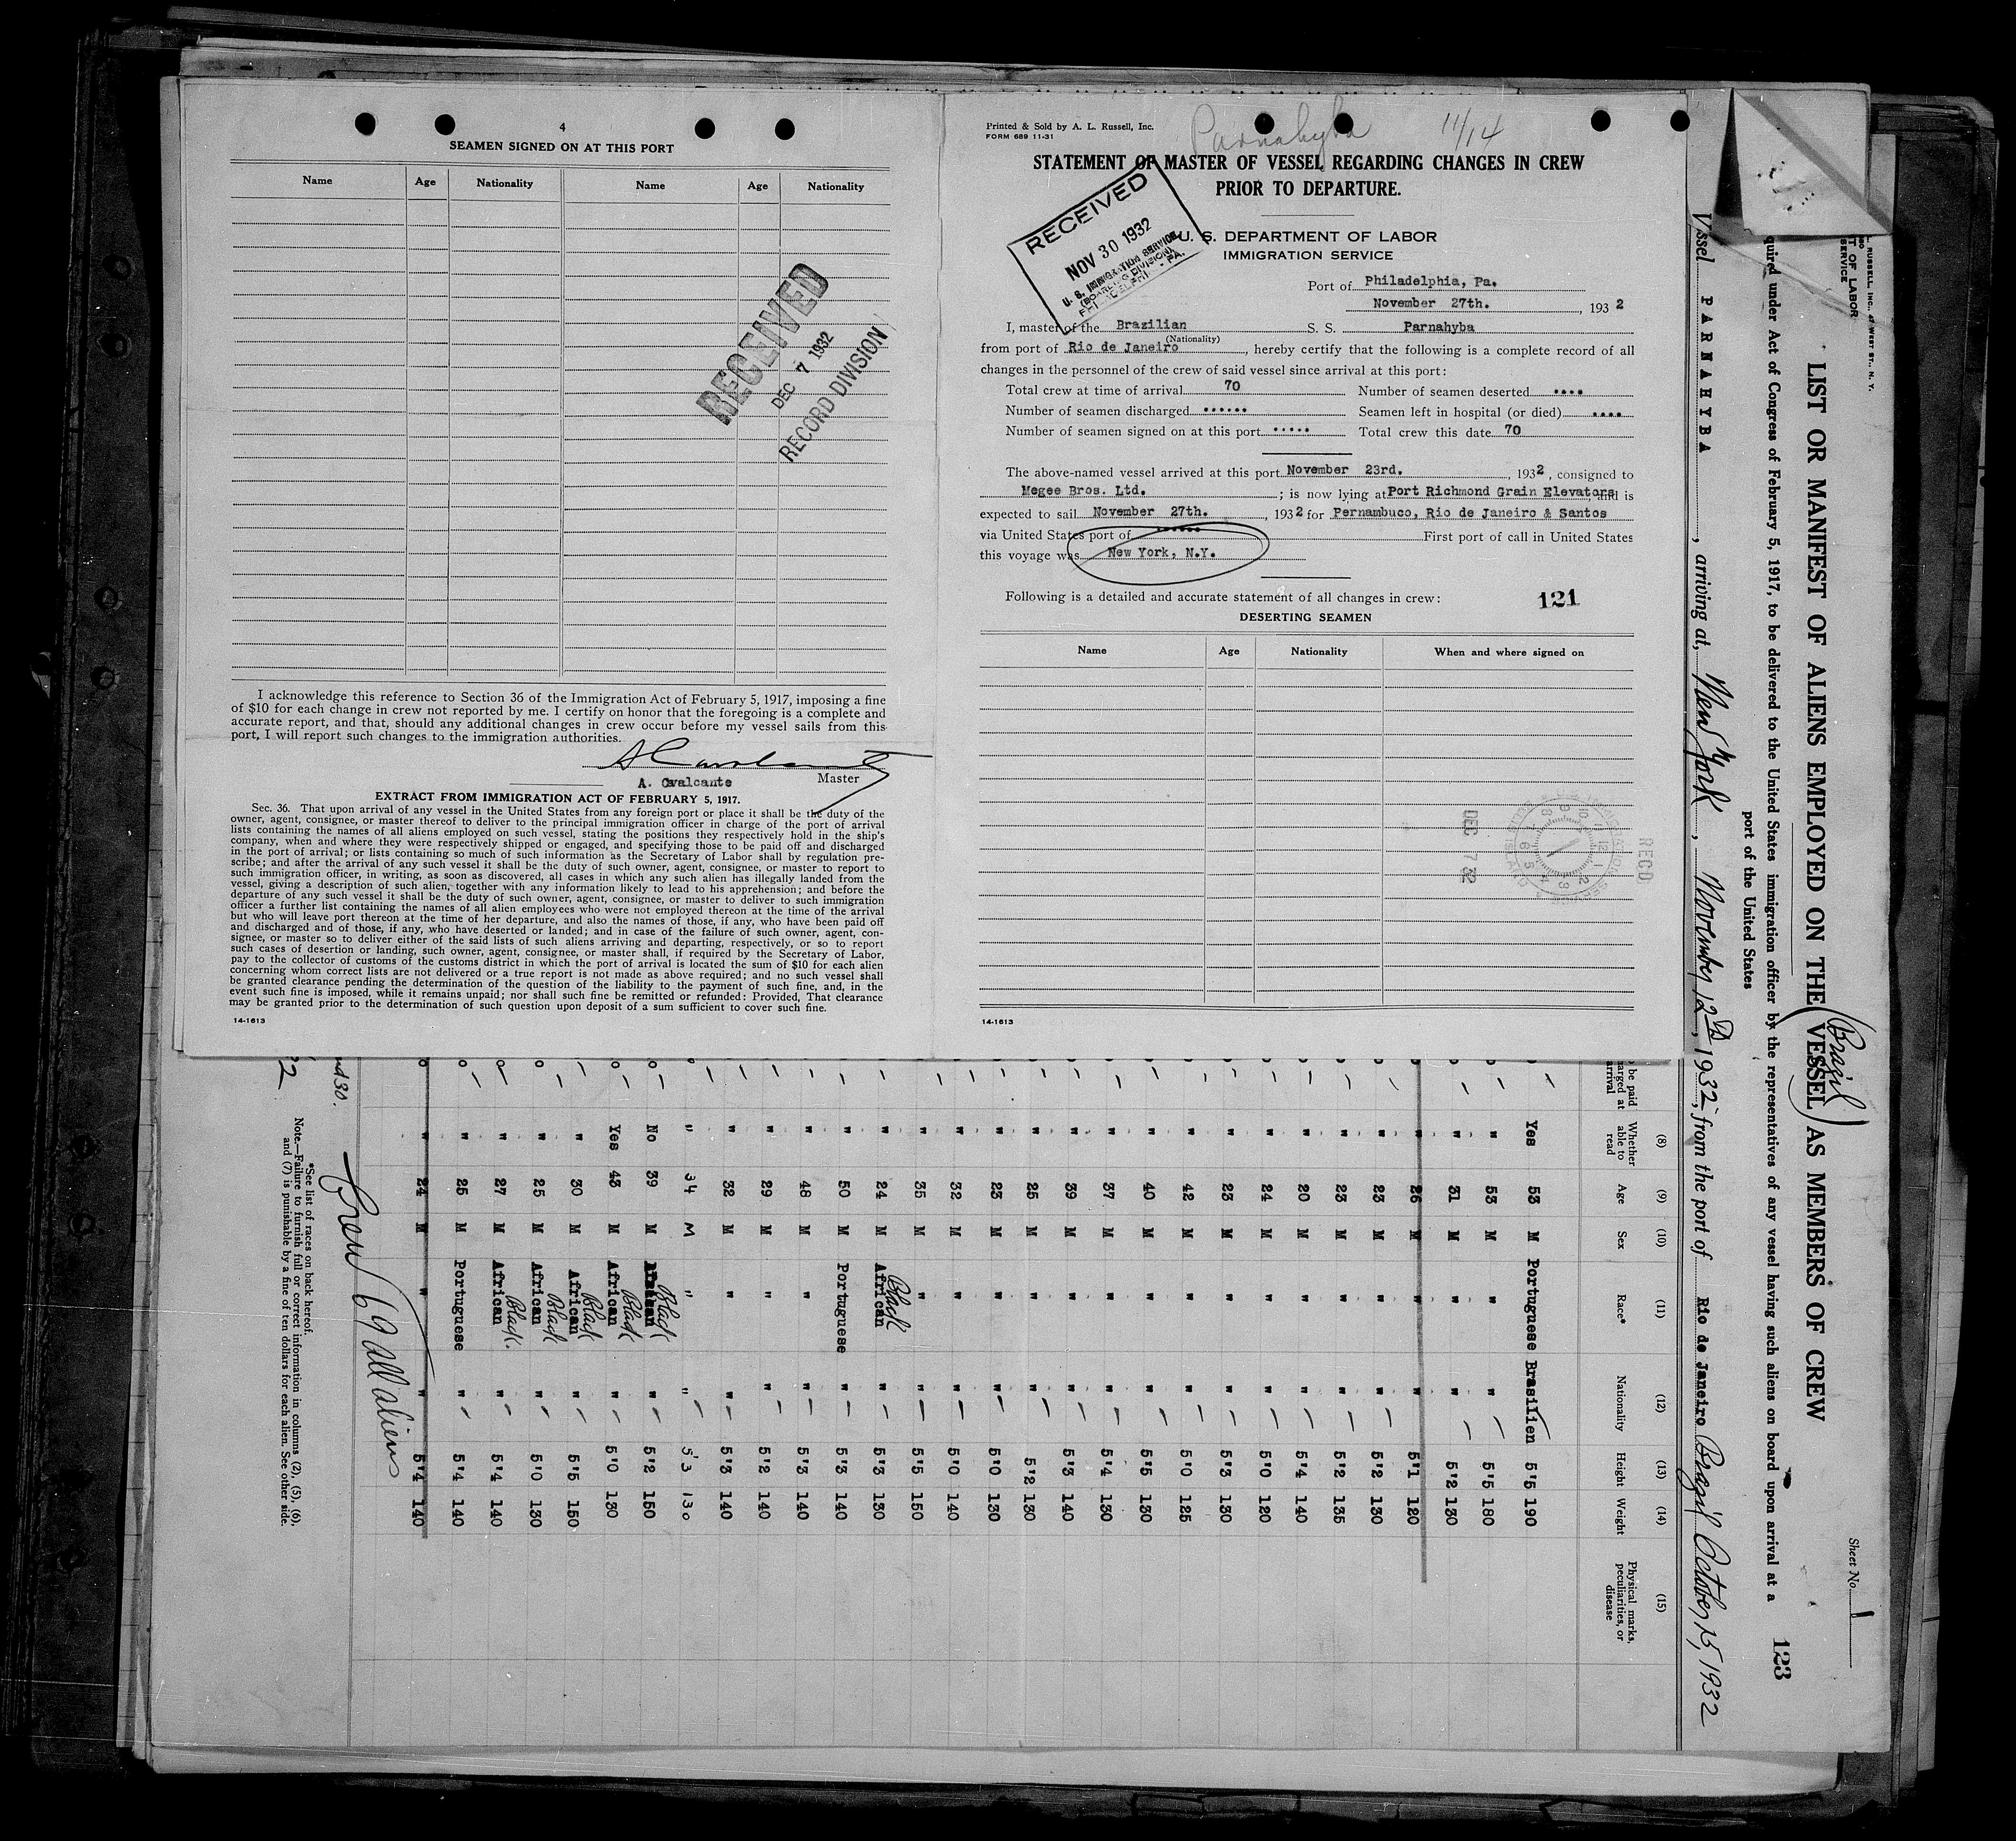 4
SEAMEN SIGNED ON AT THIS PORT
Name Age Nationality Name Age Nationality
RECEIVED
DEC 7 1932
RECORD DIVISION
I acknowledge this reference to Section 36 of the Immigration Act of February 5, 1917, imposing a fine
of $10 for each change in crew not reported by me. I certify on honor that the foregoing is a complete and
accurate report, and that, should any additional changes in crew occur before my vessel sails from this
port, I will report such changes to the immigration authorities.
A. Cvalcante Master
EXTRACT FROM IMMIGRATION ACT OF FEBRUARY 5, 1917.
Sec. 36. That upon arrival of any vessel in the United States from any foreign port or place it shall be the duty of the
owner, agent, consignee, or master thereof to deliver to the principal immigration officer in charge of the port of arrival
lists containing the names of all aliens employed on such vessel, stating the positions they respectively hold in the ship's
company, when and where they were respectively shipped or engaged, and specifying those to be paid off and discharged
in the port of arrival; or lists containing so much of such information as the Secretary of Labor shall by regulation pre-
scribe; and after the arrival of any such vessel it shall be the duty of such owner, agent, consignee, or master to report to
such immigration officer, in writing, as soon as discovered, all cases in which any such alien has illegally landed from the
vessel, giving a description of such alien, together with any information likely to lead to his apprehension; and before the
departure of any such vessel it shall be the duty of such owner, agent, consignee, or master to deliver to such immigration
officer a further list containing the names of all alien employees who were not employed thereon at the time of the arrival
but who will leave port thereon at the time of her departure, and also the names of those, if any, who have been paid off
and discharged and of those, if any, who have deserted or landed; and in case of the failure of such owner, agent, con-
signee, or master so to deliver either of the said lists of such aliens arriving and departing, respectively, or so to report
such cases of desertion or landing, such owner, agent, consignee, or master shall, if required by the Secretary of Labor,
pay to the collector of customs of the customs district in which the port of arrival is located the sum of $10 for each alien
concerning whom correct lists are not delivered or a true report is not made as above required; and no such vessel shall
be granted clearance pending the determination of the question of the liability to the payment of such fine, and, in the
event such fine is imposed, while it remains unpaid; nor shall such fine be remitted or refunded: Provided, That clearance
may be granted prior to the determination of such question upon deposit of a sum sufficient to cover such fine.
14-1613
Printed & Sold by A. L. Russell, Inc.
FORM 689 11-31
Parnahyba 11/14
STATEMENT OF MASTER OF VESSEL REGARDING CHANGES IN CREW
PRIOR TO DEPARTURE.
RECEIVED
NOV 30 1932
U. S. IMMIGRATION SERVICE
(BOARDING DIVISION)
PA.
U. S. DEPARTMENT OF LABOR
IMMIGRATION SERVICE
Port of Philadelphia, Pa.
November 27th. , 1932
I, master of the Brazilian S. S. Parnahyba
(Nationality)
from port of Rio de Janeiro , hereby certify that the following is a complete record of all
changes in the personnel of the crew of said vessel since arrival at this port:
Total crew at time of arrival 70 Number of seamen deserted ....
Number of seamen discharged ...... Seamen left in hospital (or died) ....
Number of seamen signed on at this port ..... Total crew this date 70
The above-named vessel arrived at this port November 23rd. , 1932 , consigned to
Megee Bros. Ltd. ; is now lying at Port Richmond Grain Elevators and is
expected to sail November 27th. , 1932 for Pernambuco, Rio de Janeiro & Santos
via United States port of ...... First port of call in United States
this voyage was New York, N.Y.
Following is a detailed and accurate statement of all changes in crew:
121
DESERTING SEAMEN
Name Age Nationality When and where signed on
RECD
DEC 7 32
14-1613
Sheet No. 1
123
LIST OR MANIFEST OF ALIENS EMPLOYED ON THE VESSEL AS MEMBERS OF CREW
(Brazil)
quired under Act of Congress of February 5, 1917, to be delivered to the United States immigration officer by the representatives of any vessel having such aliens on board upon arrival at a
port of the United States
Vessel PARNAHYBA , arriving at, New York , November 12th, 1932, from the port of Rio de Janeiro Brazil October 15, 1932
(8) (9) (10) (11) (12) (13) (14) (15)
Whether able to read Age Sex Race* Nationality Height Weight Physical marks, peculiarities, or disease
Yes 53 M Portuguese Brasilien 5'5 190
" 53 M " " 5'5 180
" 31 M " " 5'2 130
" 26 M " " 5'1 120
" 23 M " " 5'2 130
" 23 M " " 5'2 135
" 20 M " " 5'4 140
" 24 M " " 5'0 120
" 23 M " " 5'3 130
" 42 M " " 5'0 125
" 40 M " " 5'5 130
" 37 M " " 5'4 130
" 39 M " " 5'3 140
" 25 M " " 5'2 130
" 23 M " " 5'0 130
" 32 M " " 5'0 140
" 35 M " " 5'5 150
" 24 M African Black " 5'3 130
" 50 M Portuguese " 5'3 140
" 48 M " " 5'3 140
" 29 M " " 5'2 140
" 32 M " " 5'3 140
" 34 M " " 5'3 130
No 39 M Black " 5'2 150
Yes 43 M African Black " 5'0 130
" 30 M African Black " 5'5 150
" 25 M African Black " 5'0 130
" 27 M African Black " 5'4 140
" 25 M Portuguese " 5'4 140
" 24 M " " 5'4 140
Crew 69 all aliens
*See list of races on back hereof.
Note.—Failure to furnish full or correct information in columns (2), (5), (6),
and (7) is punishable by a fine of ten dollars for each alien. See other side.